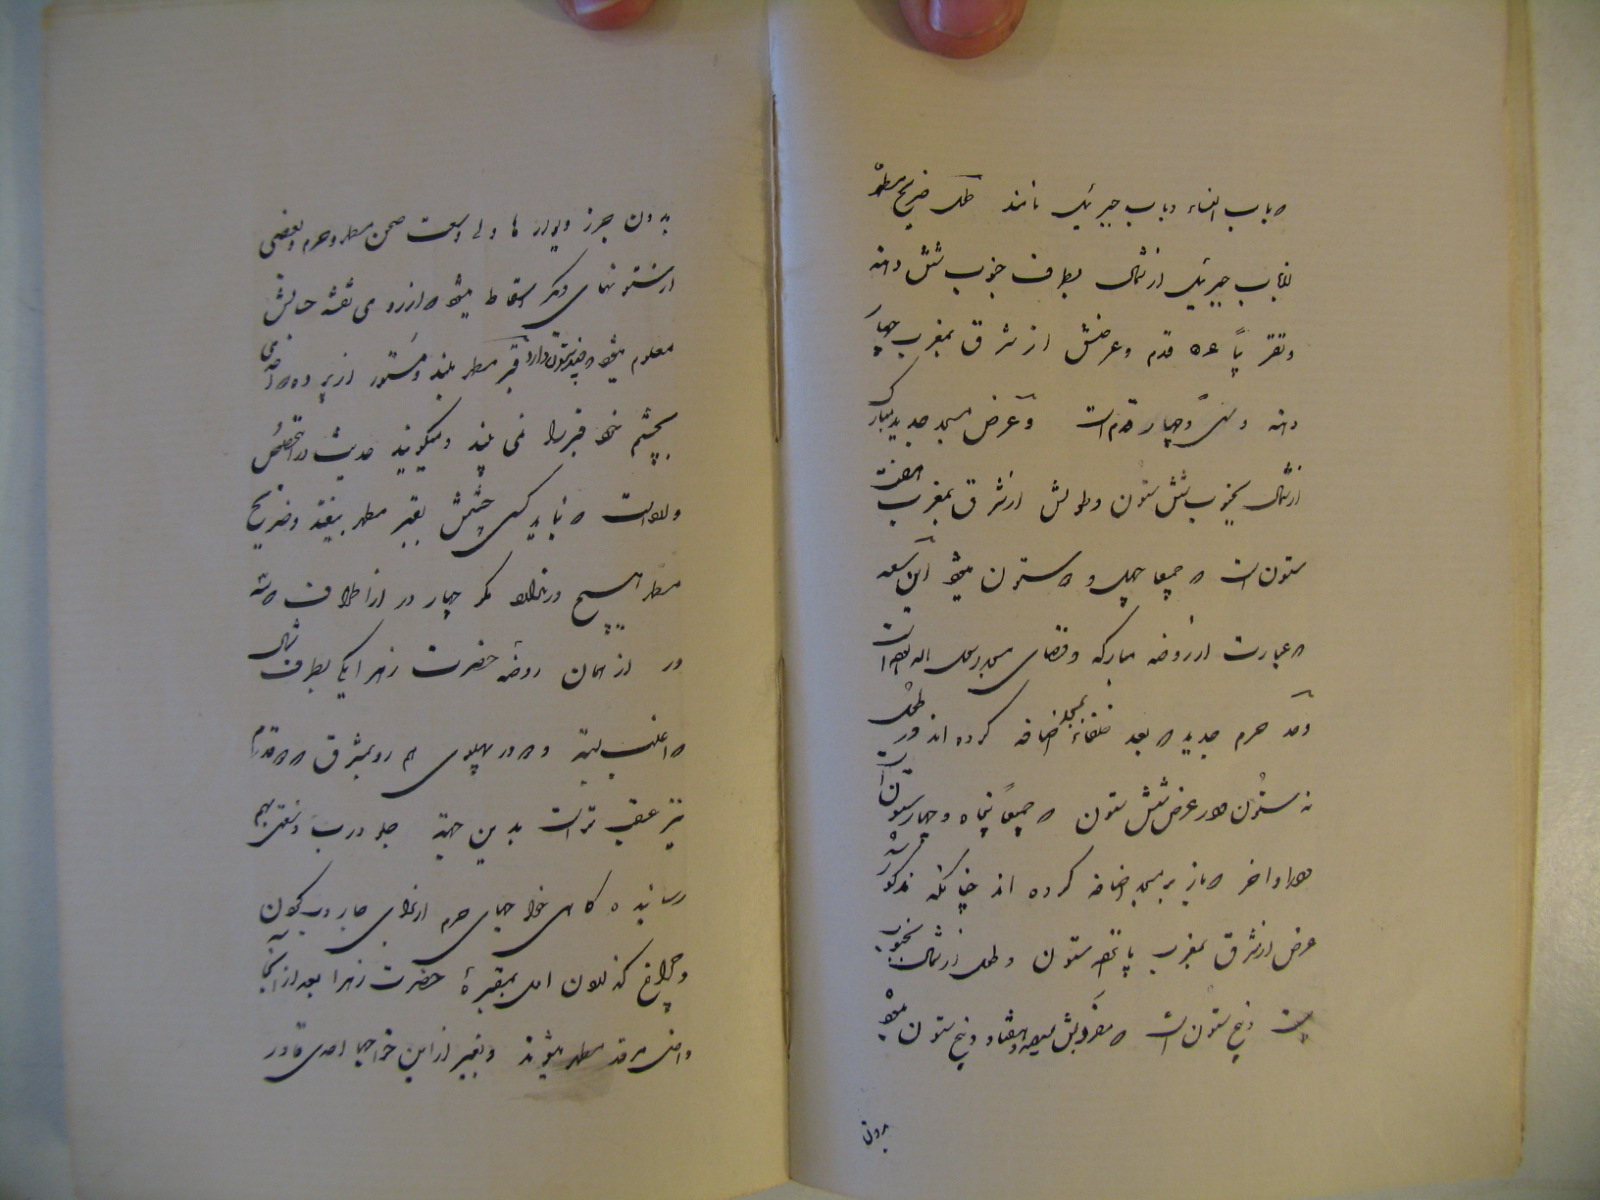 باب النساء و باب جبرئیل نامند طول ضریح مطهر
از باب جبرئیل از شمال بطرف جنوب شش دهنه
و تقریباً ۵۴ قدم و عرضش از شرق بمغرب چهار
دهنه و سی و چهار قدم است و عرض مسجد جدید مبارک
از شمال بجنوب شش ستون و طولش از شرق بمغرب هفت
ستون است که جمعا چهل و دو ستون میشود این
که عبارت از روضه مبارکه و فضای مسجد رسول الله است
و آمد حرم جدید که بعد خلفاء بمسجد اضافه کرده اند در طول
نه ستون و در عرض شش ستون که جمعاً پنجاه و چهار ستون است
و اواخر باز بر مسجد اضافه کرده اند چنانکه مذکور شد
عرض از شرق بمغرب پانزده ستون و طول از شمال بجنوب
بیست و پنج ستون است که سیصد و هفتاد و پنج ستون میشود
بدون
بدون جرز دیوار ها ولی وسعت صحن مطهر و حرم و بعضی
از ستونهای دیگر اسقاط میشود که از روی نقشه حالش
معلوم میشود که چند ستون دارد قبر مطهر بلند و مستور از پرده که احدی
بچشم خود قبر را نمی بیند و میگویند حدیث در اینخصوص
وارد است که نباید کسی چشمش بقبر مطهر بیفتد و ضریح
مطهر هیچ در ندارد مگر چهار در از اطراف که سه
در از همان روضه حضرت زهرا یکی بطرف شمال
که اغلب بسته و دو در پهلوی هم رو بمشرق که دو قدم
نیز عقب تر است بدین جهة جلو درب و سقف بهم
رسانیده گاهی خواجهای حرم از برای جاروب کردن
و چراغ گذاردن اول بمقبره حضرت زهرا بعد از آنجا
داخل مرقد مطهر میشوند و بغیر از این خواجها احدی قادر